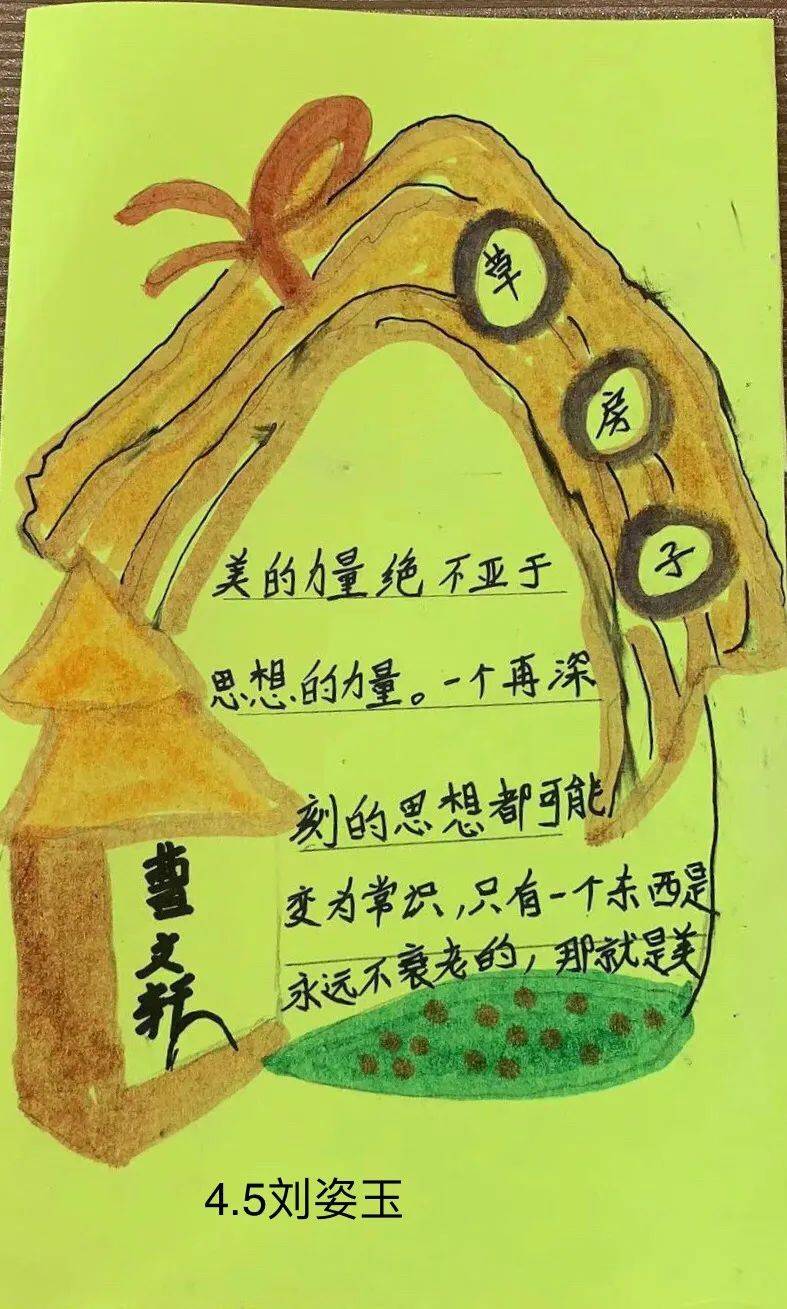 草
房
子
美的力量绝不亚于
思想的力量。一个再深
刻的思想都可能
变为常识,只有一个东西是
永远不衰老的,那就是美
曹
文
轩
4.5刘姿玉